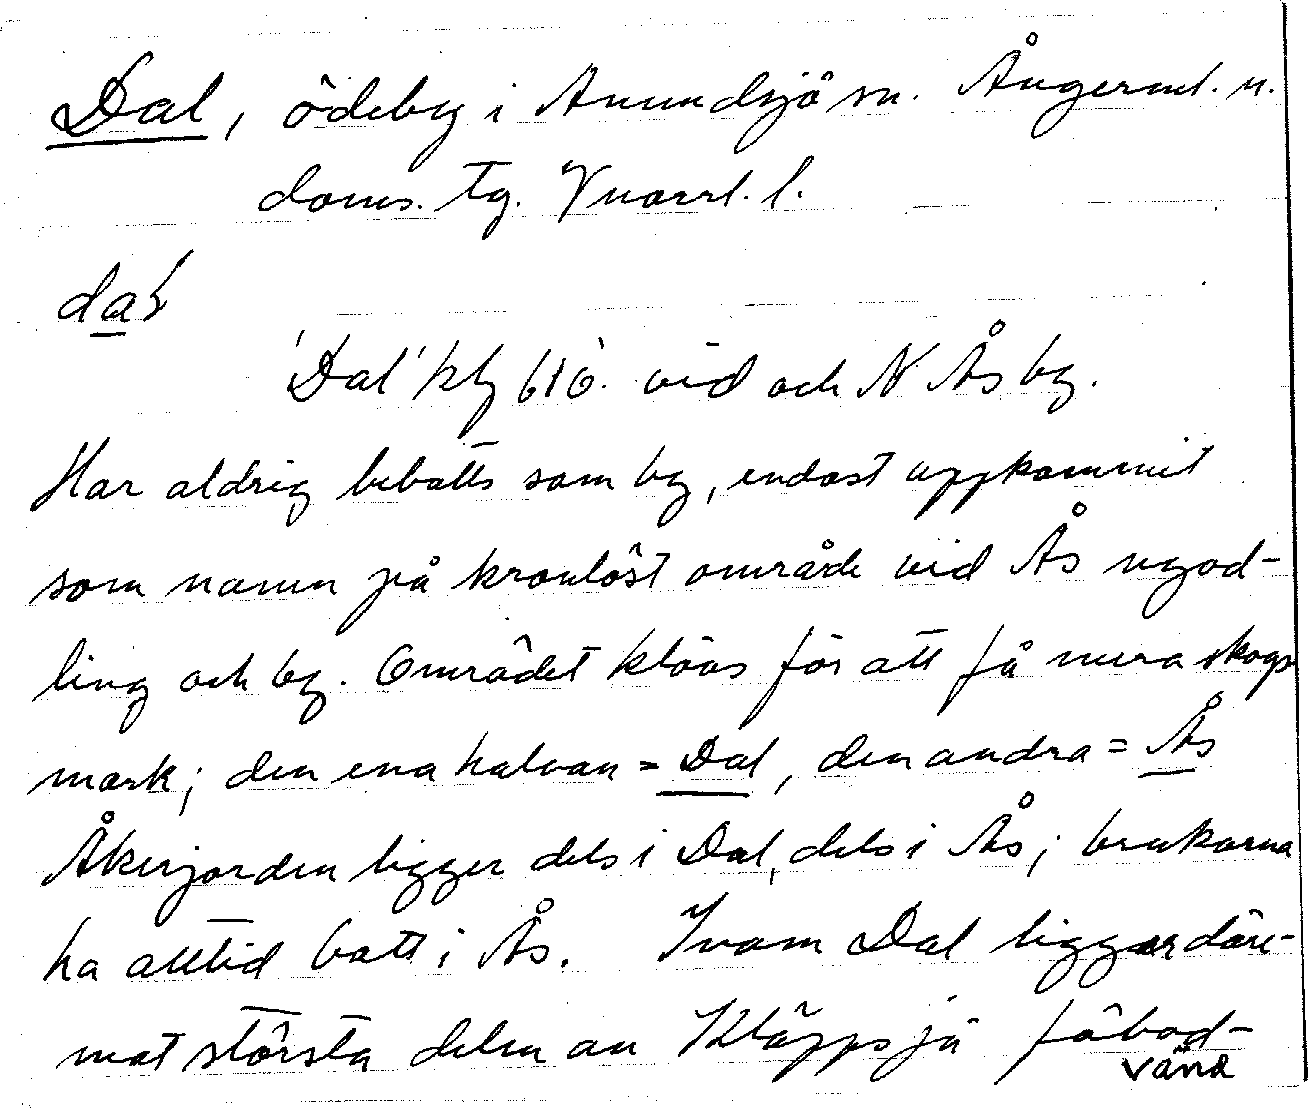 Dal, ödeby i Anundsjö sn. Ångerml. n.
doms. tg. Vnorrl. l.
dal
'Dal' kbj 616. vid och N Ås by.
Har aldrig bebotts som by, endast uppkommit
som namn på kronlöst område vid Ås nyod-
ling och by. Området klövs för att få mera skogs
mark; den ena halvan = Dal, den andra = Ås
Åkerjorden ligger dels i Dal, dels i Ås; brukarna
ha alltid bott i Ås. Inom Dal ligger däre-
mot största delen av Kläppsjö fäbod-
vänd